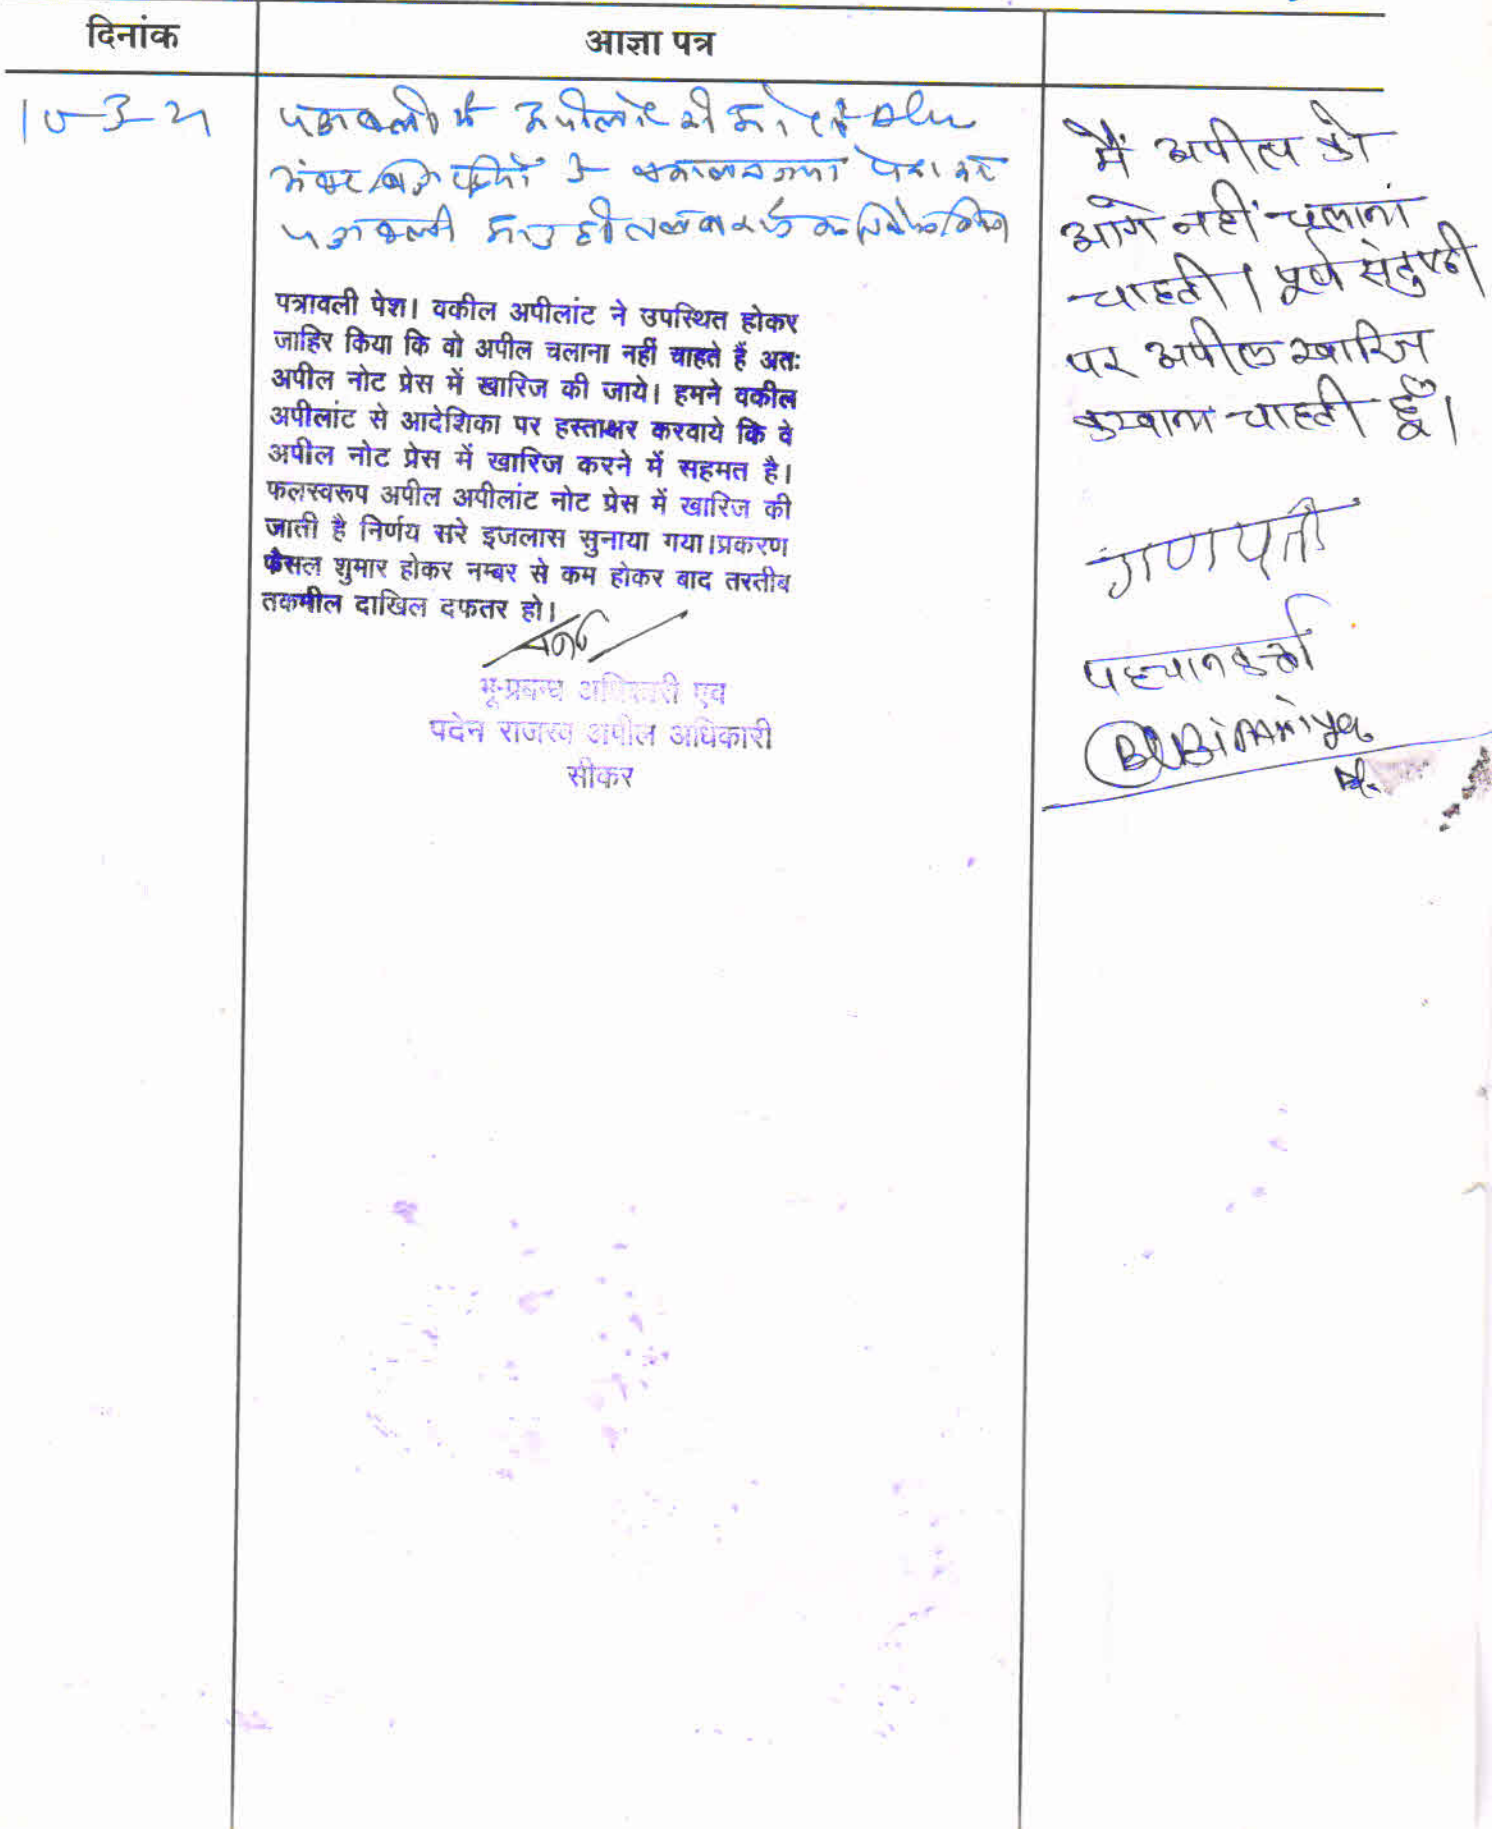 दिनांक
आज्ञा पत्र
10-3-21
पत्रावली
पेश कर
पत्रावली आज ही
पत्रावली पेश। वकील अपीलांट ने उपस्थित होकर
जाहिर किया कि वो अपील चलाना नहीं चाहते हैं अतः
अपील नोट प्रेस में खारिज की जाये। हमने वकील
अपीलांट से आदेशिका पर हस्ताक्षर करवाये कि वे
अपील नोट प्रेस में खारिज करने में सहमत है।
फलस्वरूप अपील अपीलांट नोट प्रेस में खारिज की
जाती है निर्णय सरे इजलास सुनाया गया।प्रकरण
फैसल शुमार होकर नम्बर से कम होकर बाद तरतीब
तकमील दाखिल दफतर हो।
भू-प्रबन्ध अधिकारी एवं
पदेन राजस्व अपील अधिकारी
सीकर
मैं अपील को
आगे नहीं चलाना
चाहती। पूर्ण संतुष्टी
पर अपील खारिज
करवाना चाहती हूँ।
गणपती
पहचानकर्ता